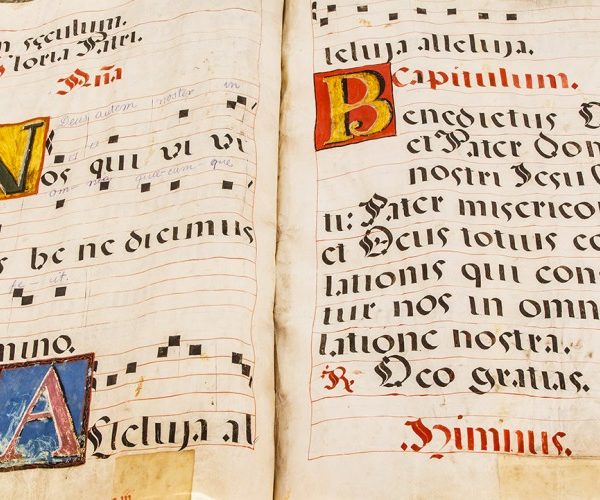 n sęculum.
Gloria Patri.
Aña
Deus autem noster in
Nos qui vi vi
om- ni- quæ-cum- que
s be ne dicimus
mino.
Alleluja al
leluja alleluja.
Capitulum.
Benedictus
et Pater Dom
nostri Jesu
ti: Pater misericor
et Deus totius co
lationis qui con
tur nos in omn
latione nostra.
R. Deo gratias.
Himnus.